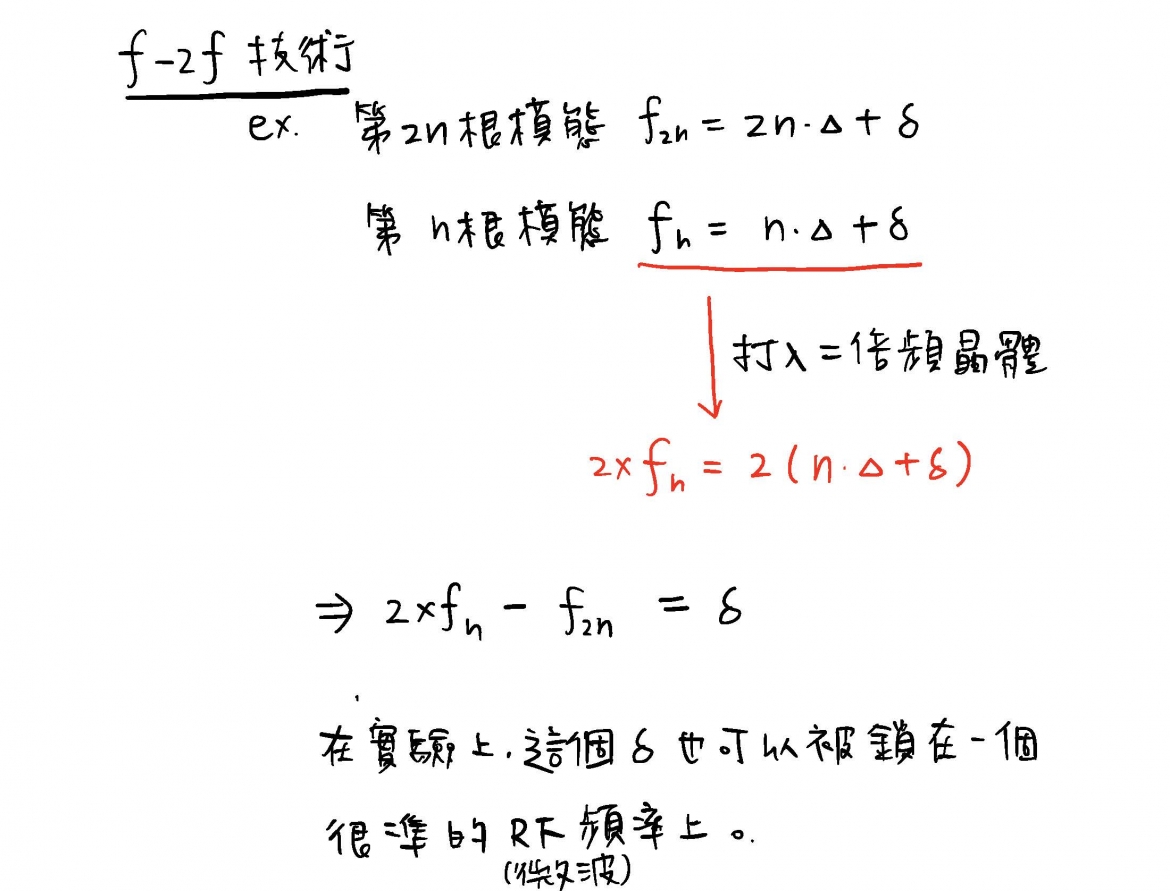 f-2f 技術
ex. 第2n根模態 f₂ₙ = 2n·Δ + δ
第 n根模態 fₙ = n·Δ + δ
打入二倍頻晶體
2×fₙ = 2(n·Δ+δ)
⇒ 2×fₙ - f₂ₙ = δ
在實驗上,這個δ也可以被鎖在一個
很準的RF頻率上。
(微波)